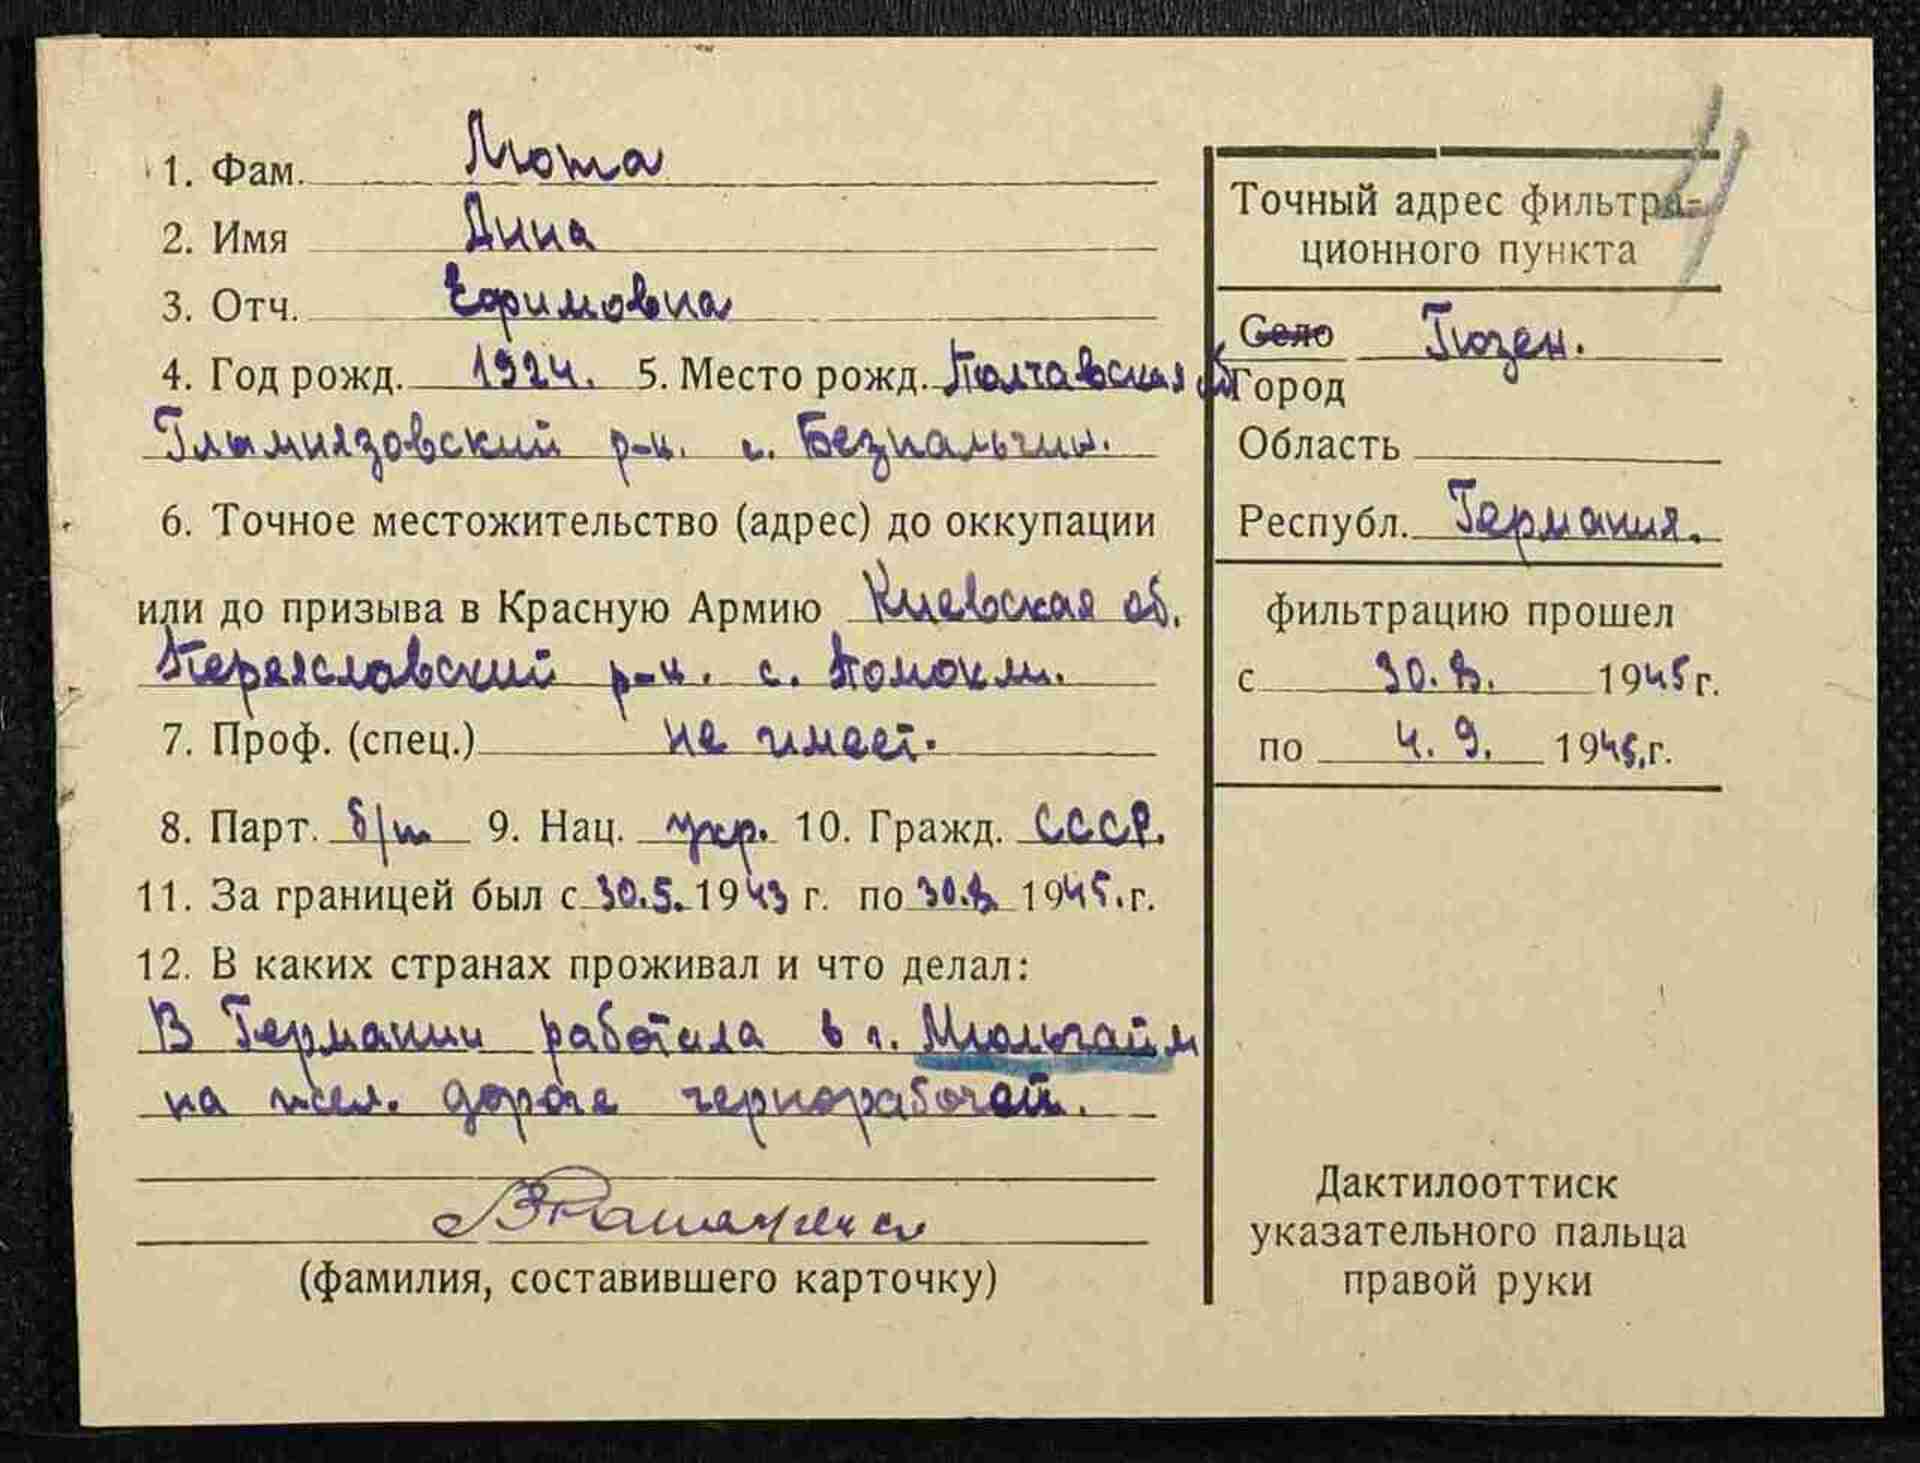 1. Фам. Люта
2. Имя Анна
3. Отч. Ефимовна
4. Год рожд. 1924. 5. Место рожд. Полтавская об
Глымязовский р-н. с. Безпальчи.
6. Точное местожительство (адрес) до оккупации
или до призыва в Красную Армию Киевская об.
Переяславский р-н. с. Помокли.
7. Проф. (спец.) не имеет.
8. Парт. б/п 9. Нац. укр. 10. Гражд. СССР.
11. За границей был с 30.5. 1943 г. по 30.8. 1945. г.
12. В каких странах проживал и что делал:
В Германии работала в г. Мюльгайм
на жел. дороге чернорабочей.
(фамилия, составившего карточку)
4
Точный адрес фильтра-
ционного пункта
Село Гюзен.
Город
Область
Республ. Германия.
фильтрацию прошел
с 30. 8. 1945 г.
по 4. 9. 1945. г.
Дактилооттиск
указательного пальца
правой руки